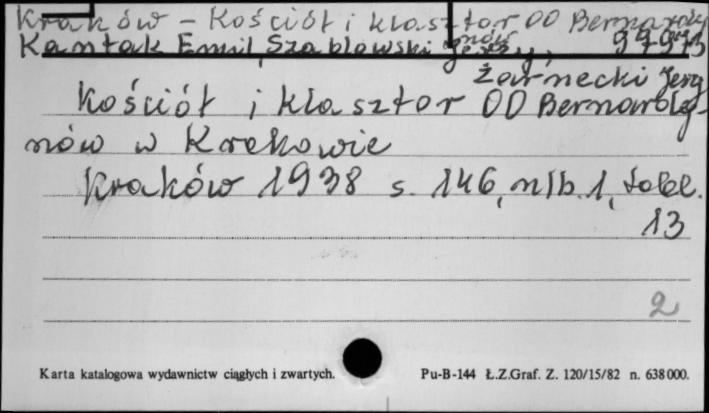 Kraków - Kościół i klasztor OO Bernardy
nów
Kantak Emil, Szablowski Jerzy, 97973
Żarnecki Jerzy
Kościół i klasztor OO Bernardy-
nów w Krakowie
Kraków 1938 s. 146, nlb. 1, tabl.
13
2
Karta katalogowa wydawnictw ciągłych i zwartych. Pu-B-144 Ł.Z.Graf. Z. 120/15/82 n. 638000.